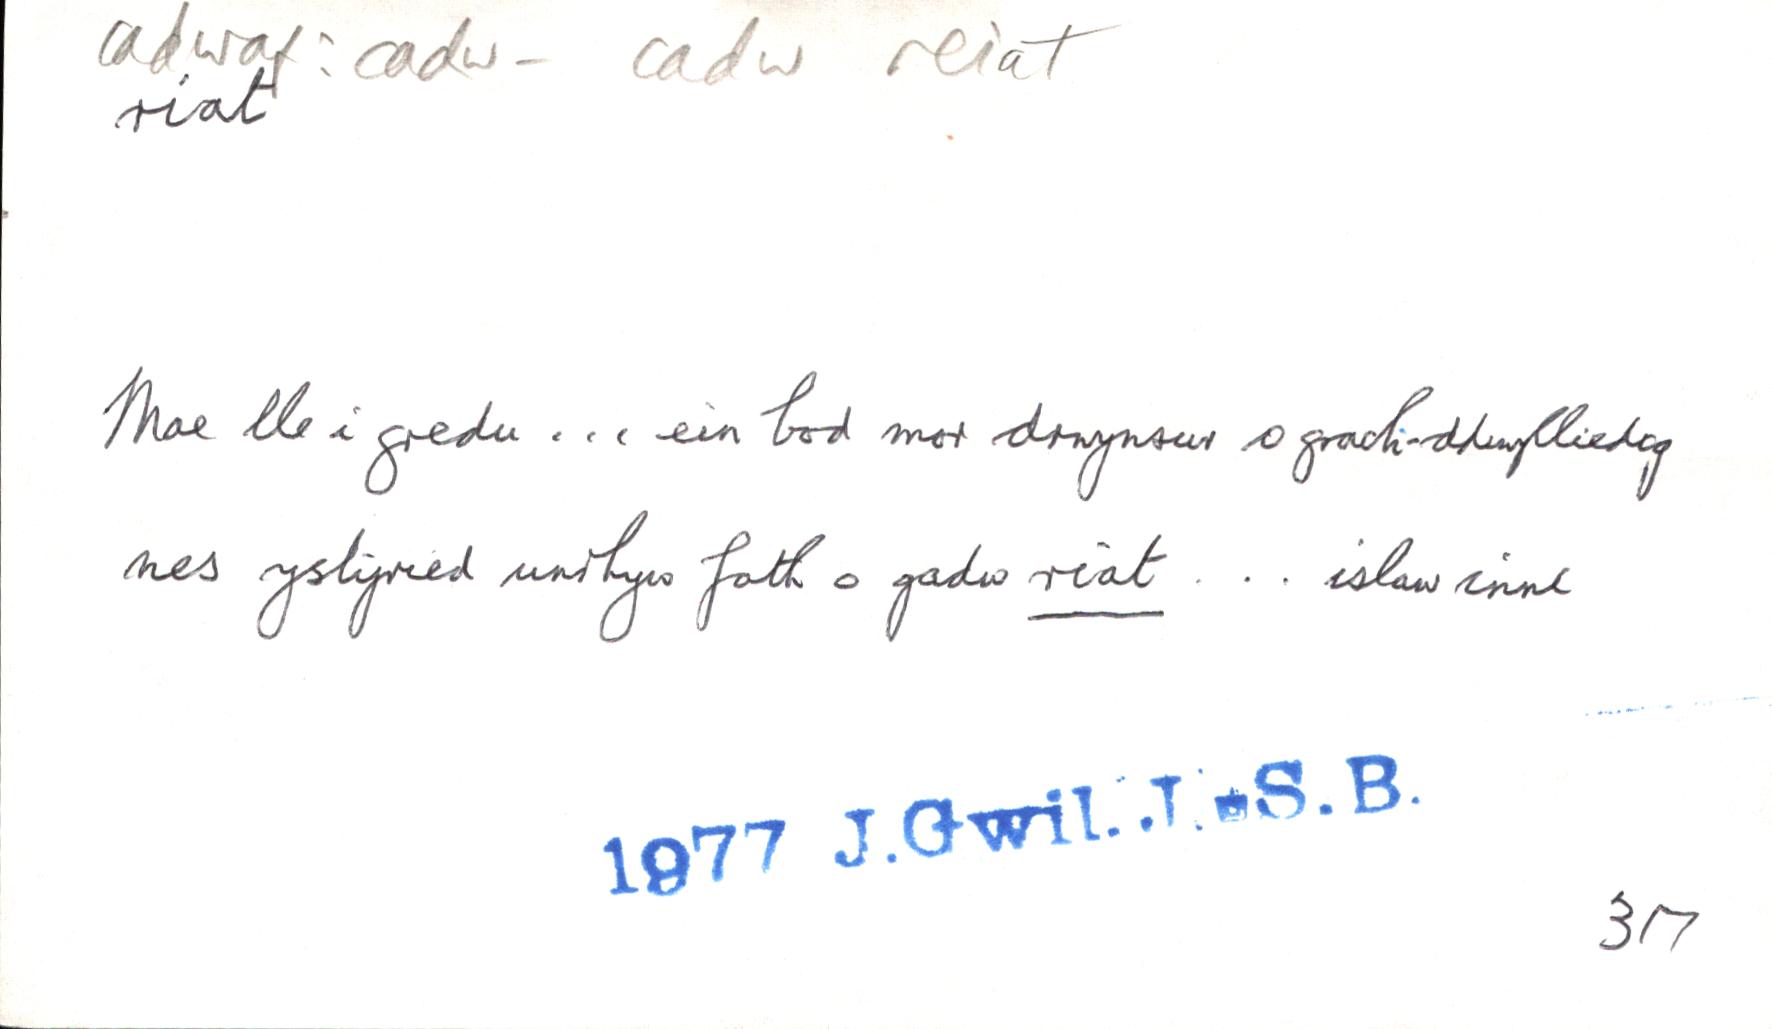 cadwaf: cadw- cadw reiat
riat
Mae lle i gredu ... ein bod mor drwynsur o grach-ddiwylliedig
nes ystyried unrhyw fath o gadw riat ... islaw inni
1977 J.Gwil.J.: S.B.
317